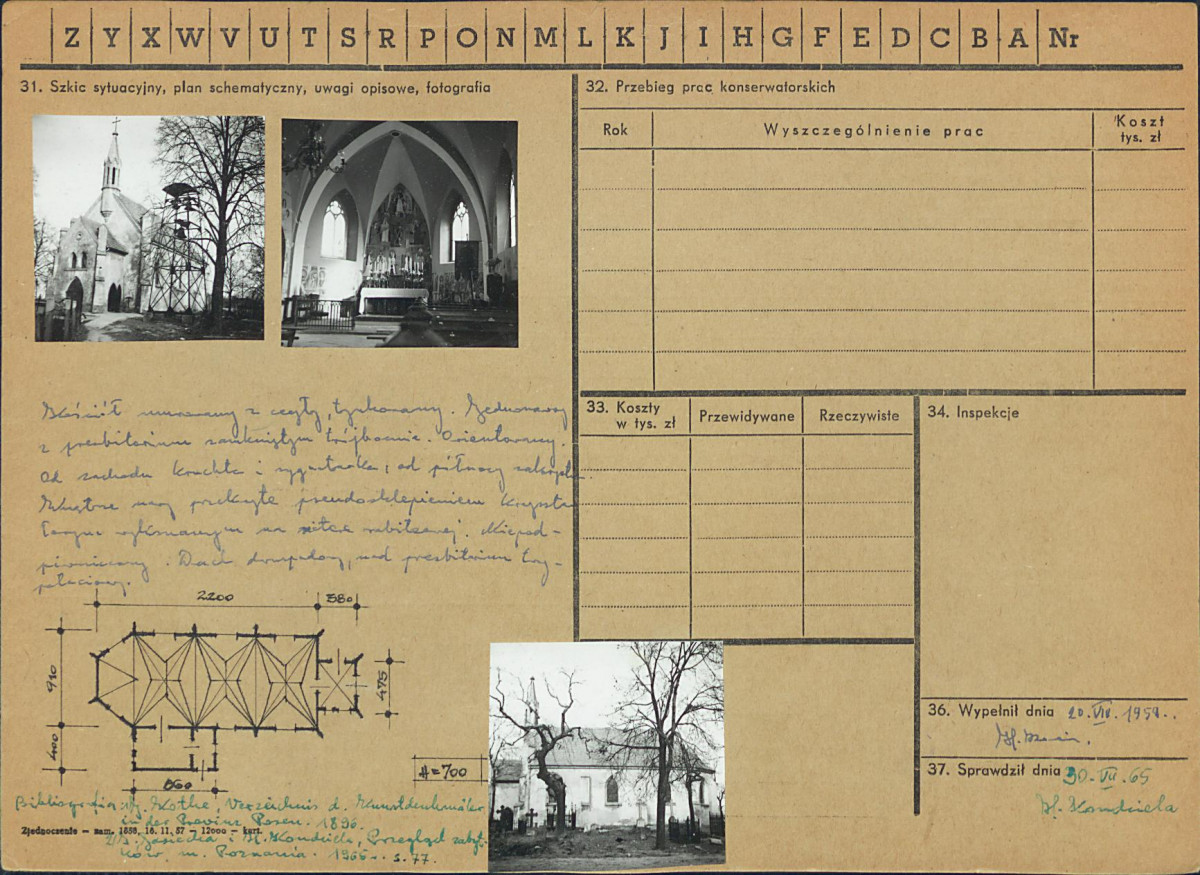 Z Y X W V U T S R P O N M L K J I H G F E D C B A Nr
31. Szkic sytuacyjny, plan schematyczny, uwagi opisowe, fotografia
Kościół murowany z cegły, tynkowany. Jednonawowy
z prezbiterium zamkniętym trójbocznie. Orientowany.
Od zachodu kruchta i sygnaturka; od północy zakrystia.
Wnętrze nawy przekryte pseudosklepieniem kryszta-
łowym wykonanym na siatce rabitzowej. Niepod-
piwniczony. Dach dwuspadowy, nad prezbiterium trój-
połaciowy.
2200
380
910
475
400
560
H=700
Bibliografia: J. Kothe, Verzeichnis d. Kunstdenkmäler
in der Provinz Posen. 1896.
Zjednoczenie – zam. 1658, 16. 11. 57 – 12000 – kart.
H. Kondziela, Przegląd zabyt-
ków m. Poznania. 1965. s. 77.
32. Przebieg prac konserwatorskich
Rok
Wyszczególnienie prac
Koszt
tys. zł
33. Koszty
w tys. zł
Przewidywane
Rzeczywiste
34. Inspekcje
36. Wypełnił dnia 20.VIII.1959.
37. Sprawdził dnia 30.VII.65
H. Kondziela